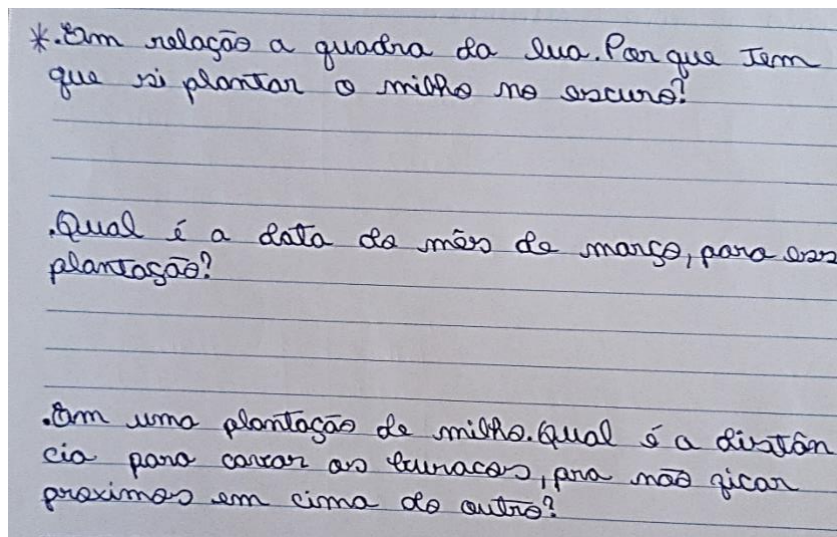 *.Em relação a quadra da lua. Por que tem
que si plantar o milho no escuro?
.Qual é a data do mês de março, para ess
plantação?
.Em uma plantação de milho. Qual é a distân
cia para cavar os buracos, pra não ficar
proximos em cima do outro?